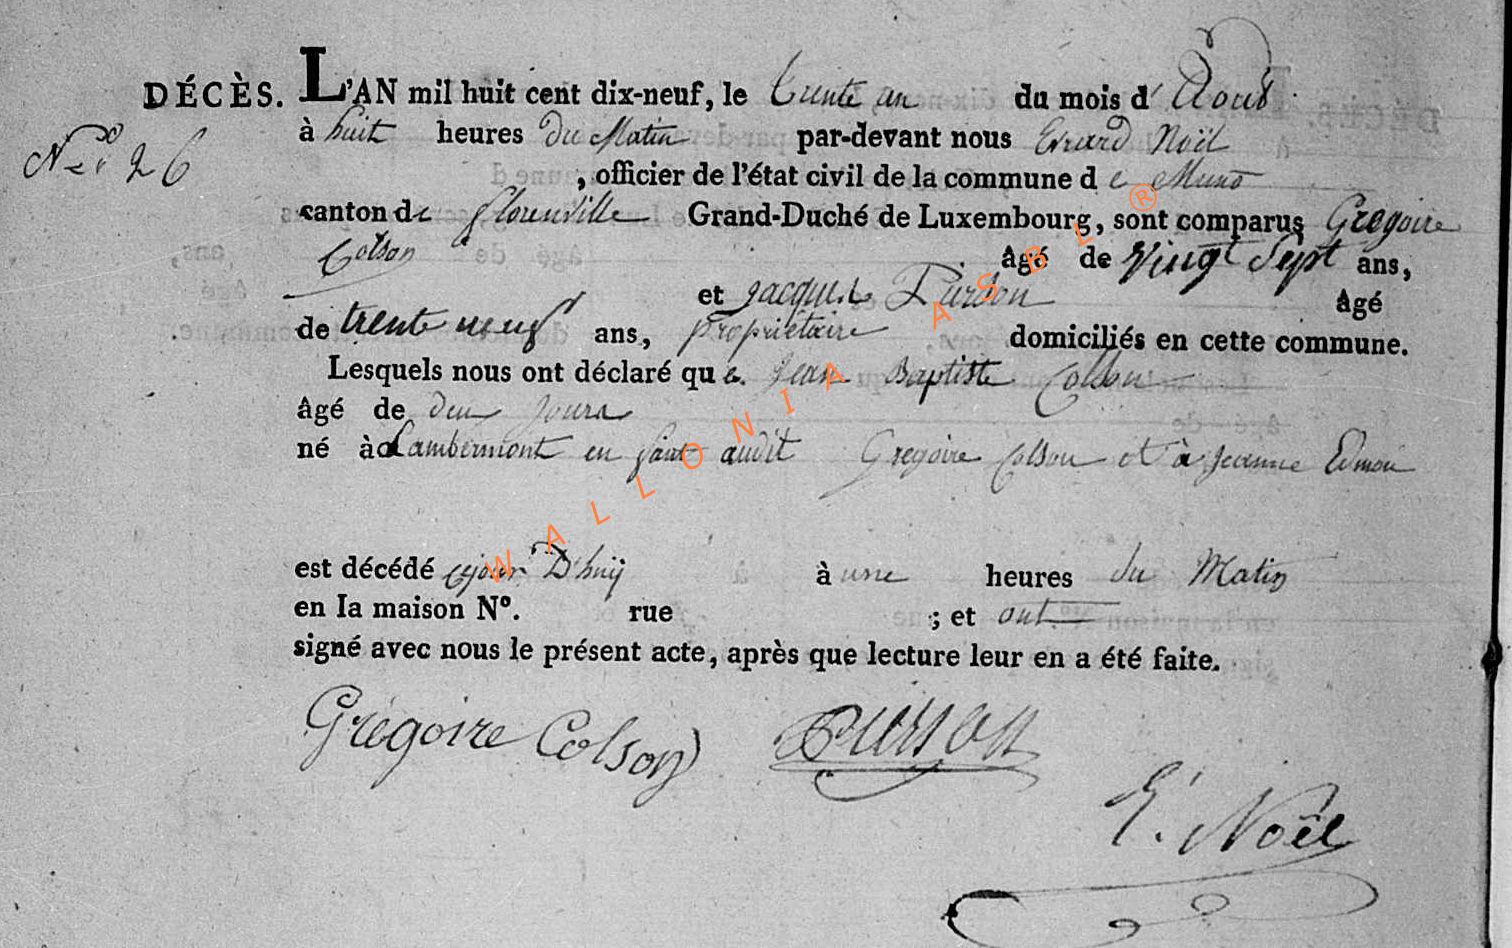 DÉCÈS. L'AN mil huit cent dix-neuf, le trente un du mois d'Aout
à huit heures du Matin par-devant nous Evrard Noël
Nro 26
, officier de l'état civil de la commune de Muno
canton de florenville Grand-Duché de Luxembourg, sont comparus Gregoire
Colson âgé de Vingt Sept ans,
et jacques Pierson âgé
de trente neuf ans, propriétaire domiciliés en cette commune.
Lesquels nous ont déclaré que Jean Baptiste Colson
âgé de deux jours
né à Lambermont en audit Gregoire Colson et à jeanne Edmon
est décédé cejour D'huy à une heures du Matin
en la maison Nº. rue ; et ont
signé avec nous le présent acte, après que lecture leur en a été faite.
Grégoire Colson Pierson
E. Noël
WALLONIA ASBL ®